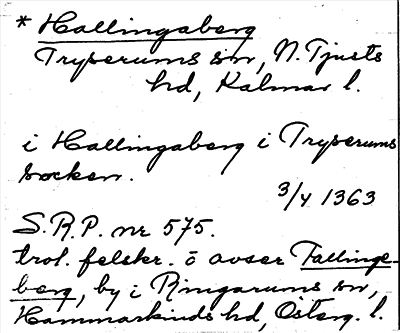 * Hallingaberg
Tryserums sn, N. Tjusts
hd, Kalmar l.
i Hallingaberg i Tryserums
socken.
3/4 1363
S.R.P. nr 575.
trol. felskr. o avser Tallinge-
berg, by i Ringarums sn,
Hammarkinds hd, Österg. l.